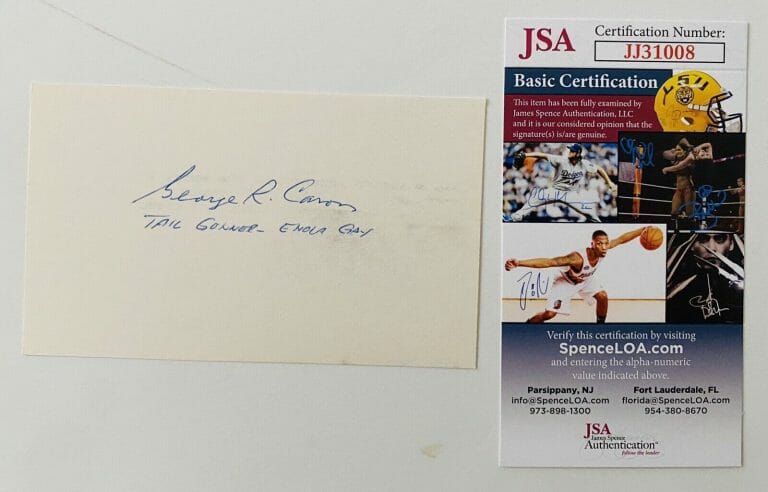 George R. Caron
TAIL GUNNER - ENOLA GAY
JSA
Certification Number:
JJ31008
Basic Certification
This item has been fully examined by
James Spence Authentication, LLC
and it is our considered opinion that the
signature(s) is/are genuine.
LSU
Dodgers
Verify this certification by visiting
SpenceLOA.com
and entering the alpha-numeric
value indicated above.
Parsippany, NJ
info@SpenceLOA.com
973-898-1300
Fort Lauderdale, FL
florida@SpenceLOA.com
954-380-8670
JSA
James Spence
Authentication™
follow the leader